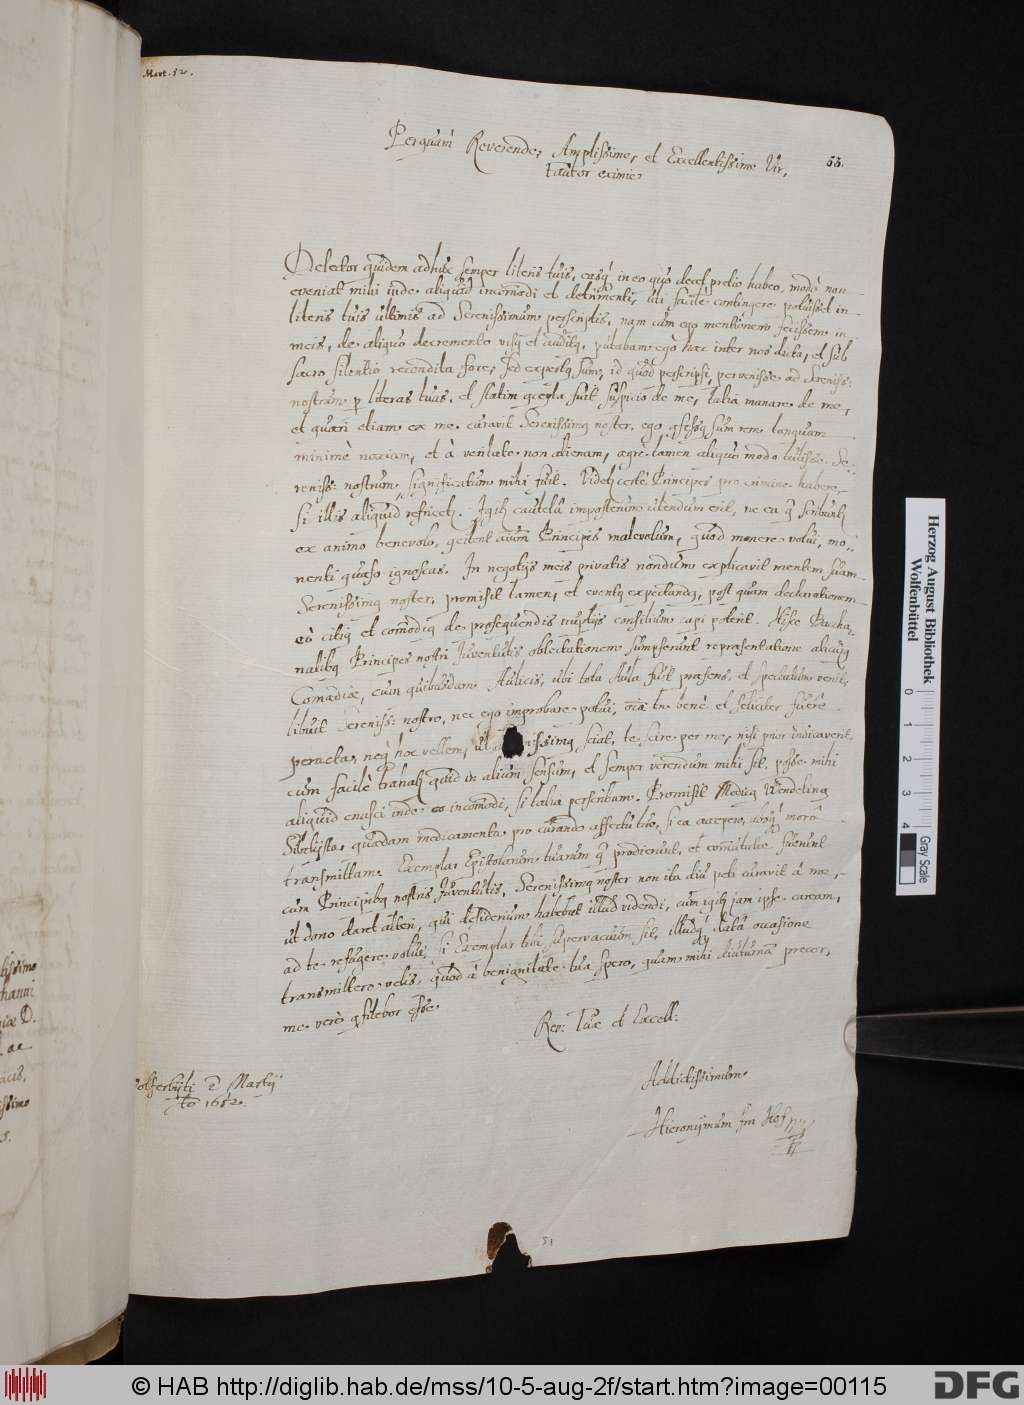 Mart. 52.
55.
Perquam Reverende, Amplissime, et Excellentissime Vir,
Fautor eximie
Delector quidem adhuc semper literis tuis, easq in eo quo decet pretio habeo, modò non
eveniat mihi inde aliquid incommodi et detrimenti, uti facilè contingere potuisset in
literis tuis ultimis ad Serenissimum perscriptis, nam cum ego mentionem fecissem in
meis, de aliquo decremento visq et auditq, putabam ego haec inter nos dicta, et sub
sacro silentio recondita fore, sed expertq sum, id quod perscripsi, pervenisse ad Sereniss:
nostrum p literas tuas, et statim cepta fuit suspicio de me, talia manare de me,
et quaeri etiam ex me curavit Serenissimq noster, ego fessq sum rem tanquam
minimè noxiam, et à veritate non alienam, aegrè tamen aliquo modo tulisse Se-
reniss: nostrum significatum mihi fuit. Videt certè Principes pro crimine habere,
si illis aliquid Igit cautela imposterum utendum erit, ne ea q scribunt
ex animo benevolo, Principis malevolum, quod monere volui, mo-
nenti quaeso ignoscas. In negotijs meis privatis nondum explicavit mentem suam
Serenissimq noster, promisit tamen, et eventq expectandq, post quam declarationem
eò citiq et comodiq de prosequendis nuptijs consilium capi poterit. Hisce Baccha-
nalibq Principes nostri Juventutis oblectationem sumpserunt repraesentatione alicujq
Comoediae, cum quibusdam Aulicis, ubi tota Aula fuit praesens, et spectatum venit,
libuit Sereniss: nostro, nec ego improbare potui, oia tn benè et feliciter fuere
peracta, neq hoc vellem, ut issimq sciat, te scire per me, nisi prior indicaverit,
cum facilè trahat quid in alium sensum, et semper verendum mihi sit, posse mihi
aliquid enasci inde incomodi, si talia perscribam. Promisit Medicq Wendelinq
quaedam medicamenta pro curando affectu tibi, si ea accepero, absq morâ
transmittam. Exempla Epistolarum tuarum q prodierunt, et comunicatae fuerunt
cum Principibq nostris Juventutis, Serenissimq noster non ita diu peti curavit à me,
ut dono daret alteri, qui desiderium habebat illud videndi, cum igit jam ipse caream,
ad te refugere volui, si Exemplar tibi supervacuum sit, illud datâ occasione
transmittere velis, quod à benignitate tua spero, quam mihi diuturnam precor,
me verò fitebor esse
Rev: Tuae et Excell:
Addictissimum
Hieronymum Im Hof
olferbyti 2 Martij
1652.
51
Herzog August Bibliothek
Wolfenbüttel
0 1 2 3 4
Gray Scale
© HAB http://diglib.hab.de/mss/10-5-aug-2f/start.htm?image=00115
DFG